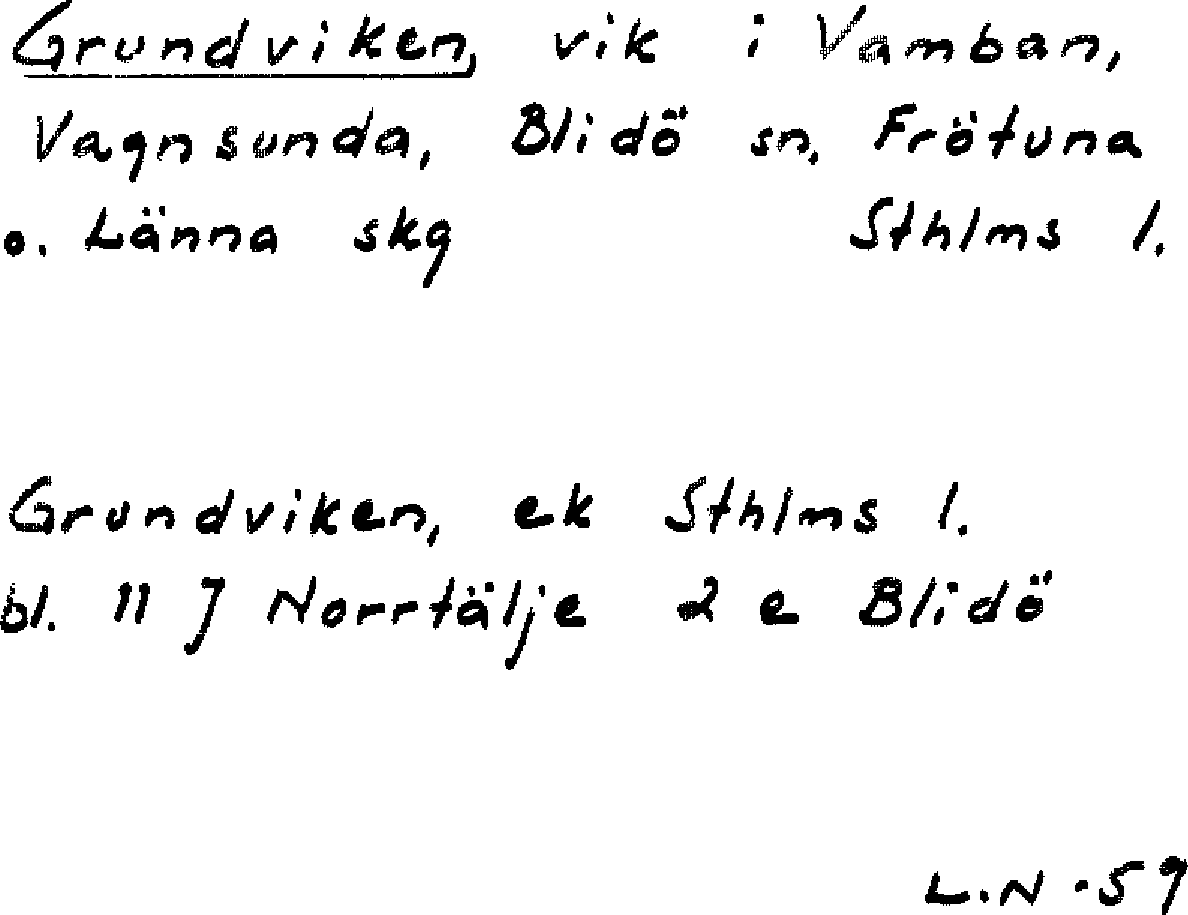 Grundviken, vik i Vamban,
Vagnsunda, Blidö sn, Frötuna
o. Länna skg Sthlms l.
Grundviken, ek Sthlms l.
bl. 11 J Norrtälje 2 e Blidö
L.N -59